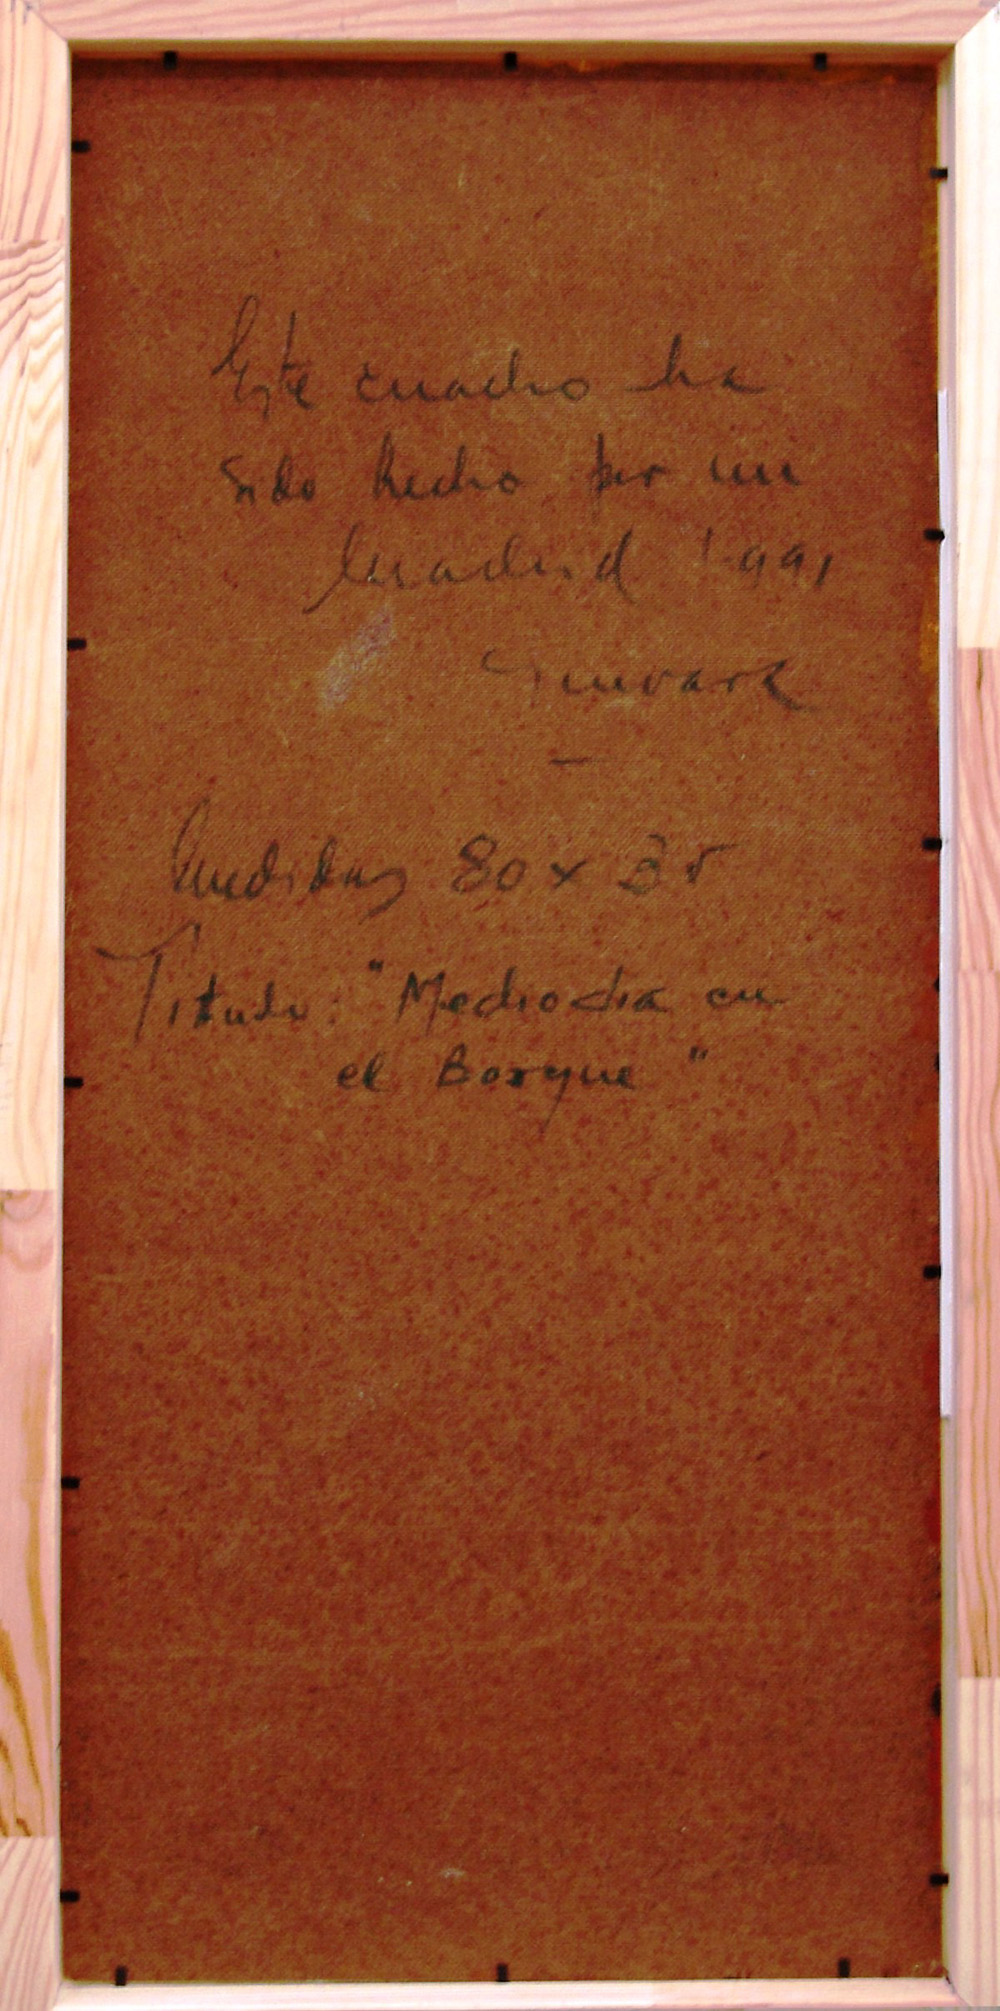 Este cuadro ha
sido hecho por mi
Madrid 1.991
Guevara
Medidas 80 x 35
Titulo: "Mediodia en
el Bosque"